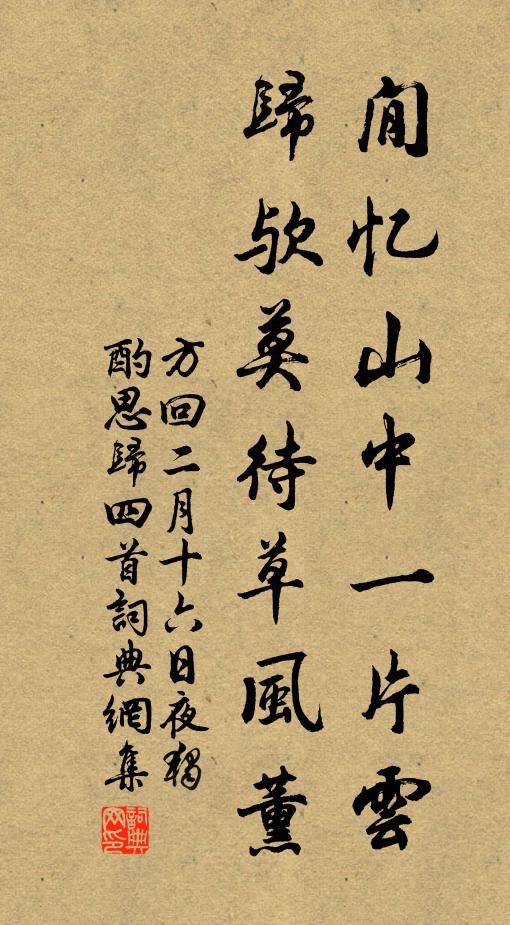 閒忆山中一片雲
歸欤莫待草風薰
方回二月十六日夜獨
酌思歸四首詞典網集
詞典網印